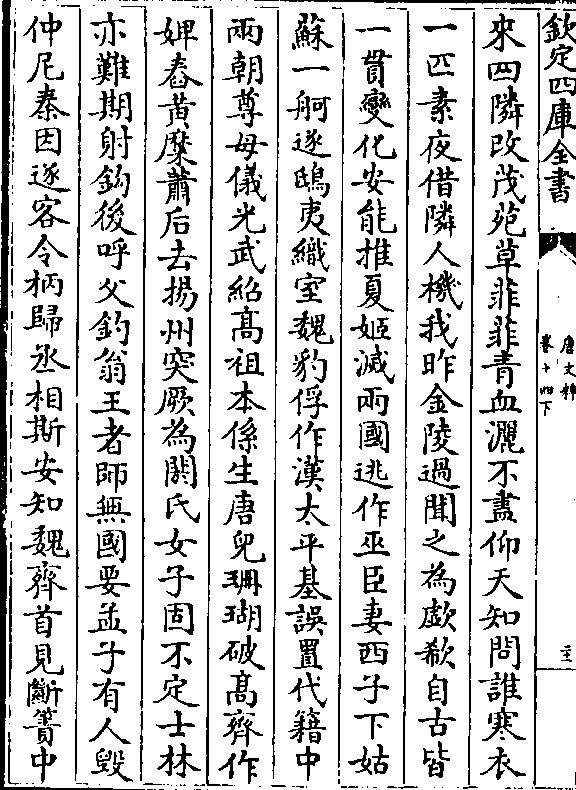 欽定四庫全書
唐文粹
卷十四下
主
來四隣改茂苑草菲菲青血灑不盡仰天知問誰寒衣
一匹素夜借隣人機我昨金陵過聞之為歔欷自古皆
一貫變化安能推夏姬滅兩國逃作巫臣妻西子下姑
蘇一舸逐鴟夷織室魏豹俘作漢太平基誤置代籍中
兩朝尊母儀光武紹高祖本係生唐兒珊瑚破高齊作
婢舂黃糜蕭后去揚州突厥為閼氏女子固不定士林
亦難期射鈎後呼父釣翁王者師無國要孟子有人毀
仲尼秦因逐客令柄歸丞相斯安知魏齊首見斷簀中